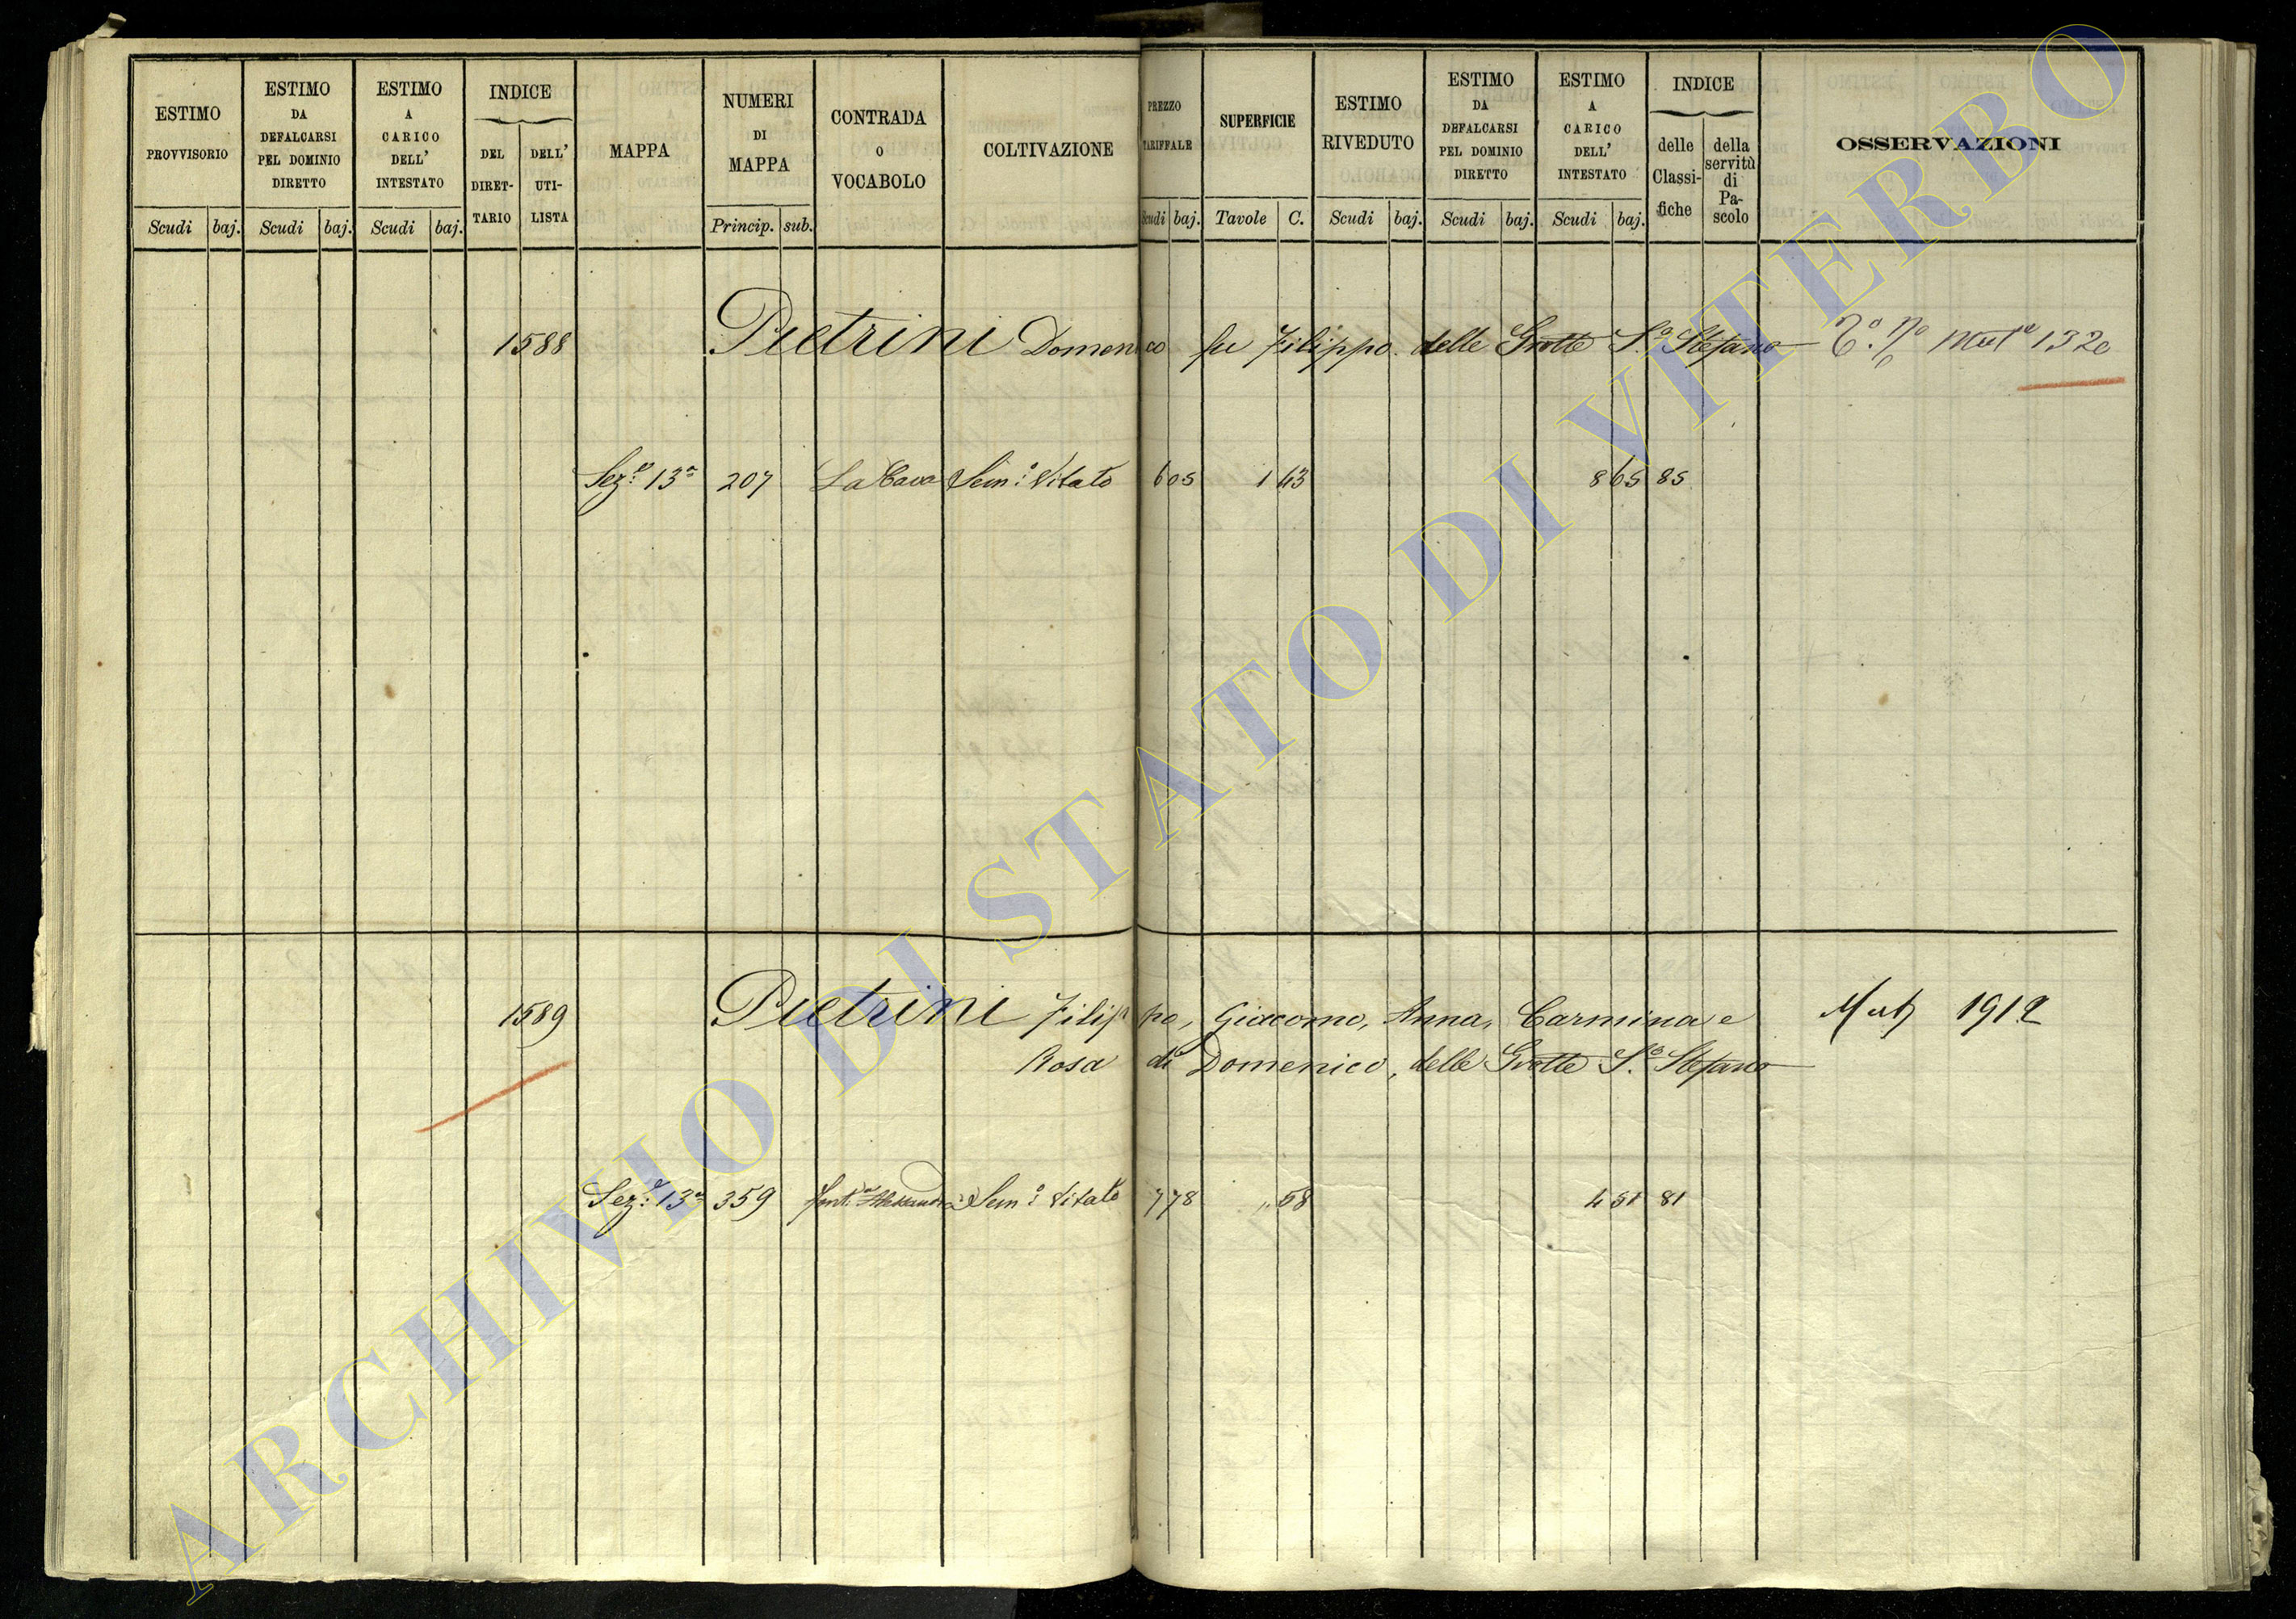 ESTIMO PROVVISORIO
Scudi baj.
ESTIMO DA DEFALCARSI PEL DOMINIO DIRETTO
Scudi baj.
ESTIMO A CARICO DELL' INTESTATO
Scudi baj.
INDICE
DEL DIRET-TARIO
DELL' UTI-LISTA
MAPPA
NUMERI DI MAPPA
Princip. sub.
CONTRADA O VOCABOLO
COLTIVAZIONE
PREZZO TARIFFALE
Scudi baj.
SUPERFICIE
Tavole C.
ESTIMO RIVEDUTO
Scudi baj.
ESTIMO DA DEFALCARSI PEL DOMINIO DIRETTO
Scudi baj.
ESTIMO A CARICO DELL' INTESTATO
Scudi baj.
INDICE
delle Classi-fiche
della servitù di Pa-scolo
OSSERVAZIONI
1588 Pietrini Domenico fu Filippo delle Grotte S.o Stefano Muta 1320
Sez.e 13a 207 La Cava Sem.o Vitato 6 05 1 43 8 65 85
1589 Pietrini Filippo, Giacomo, Anna, Carmina e Mut 1912
Rosa di Domenico, delle Grotte S.o Stefano
Sez.e 13a 359 Sem.o Vitato 7 78 " 58 4 51 81
ARCHIVIO DI STATO DI VITERBO